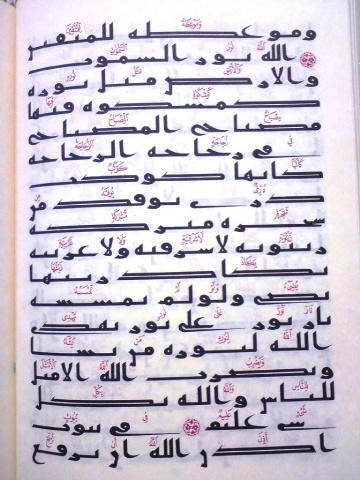 وموعظة للمتقين
الله نور السموت
والأرض مثل نوره
كمشكوة فيها
مصباح المصباح
في زجاجة الزجاجة
كأنها كوكب
دري يوقد من
شجرة مبركة
زيتونة لا شرقية ولا غربية
يكاد زيتها
يضيء ولو لم تمسسه
نار نور على نور يهدي
الله لنوره من يشاء
ويضرب الله الأمثل
للناس والله بكل
شيء عليم في بيوت
أذن الله أن ترفع